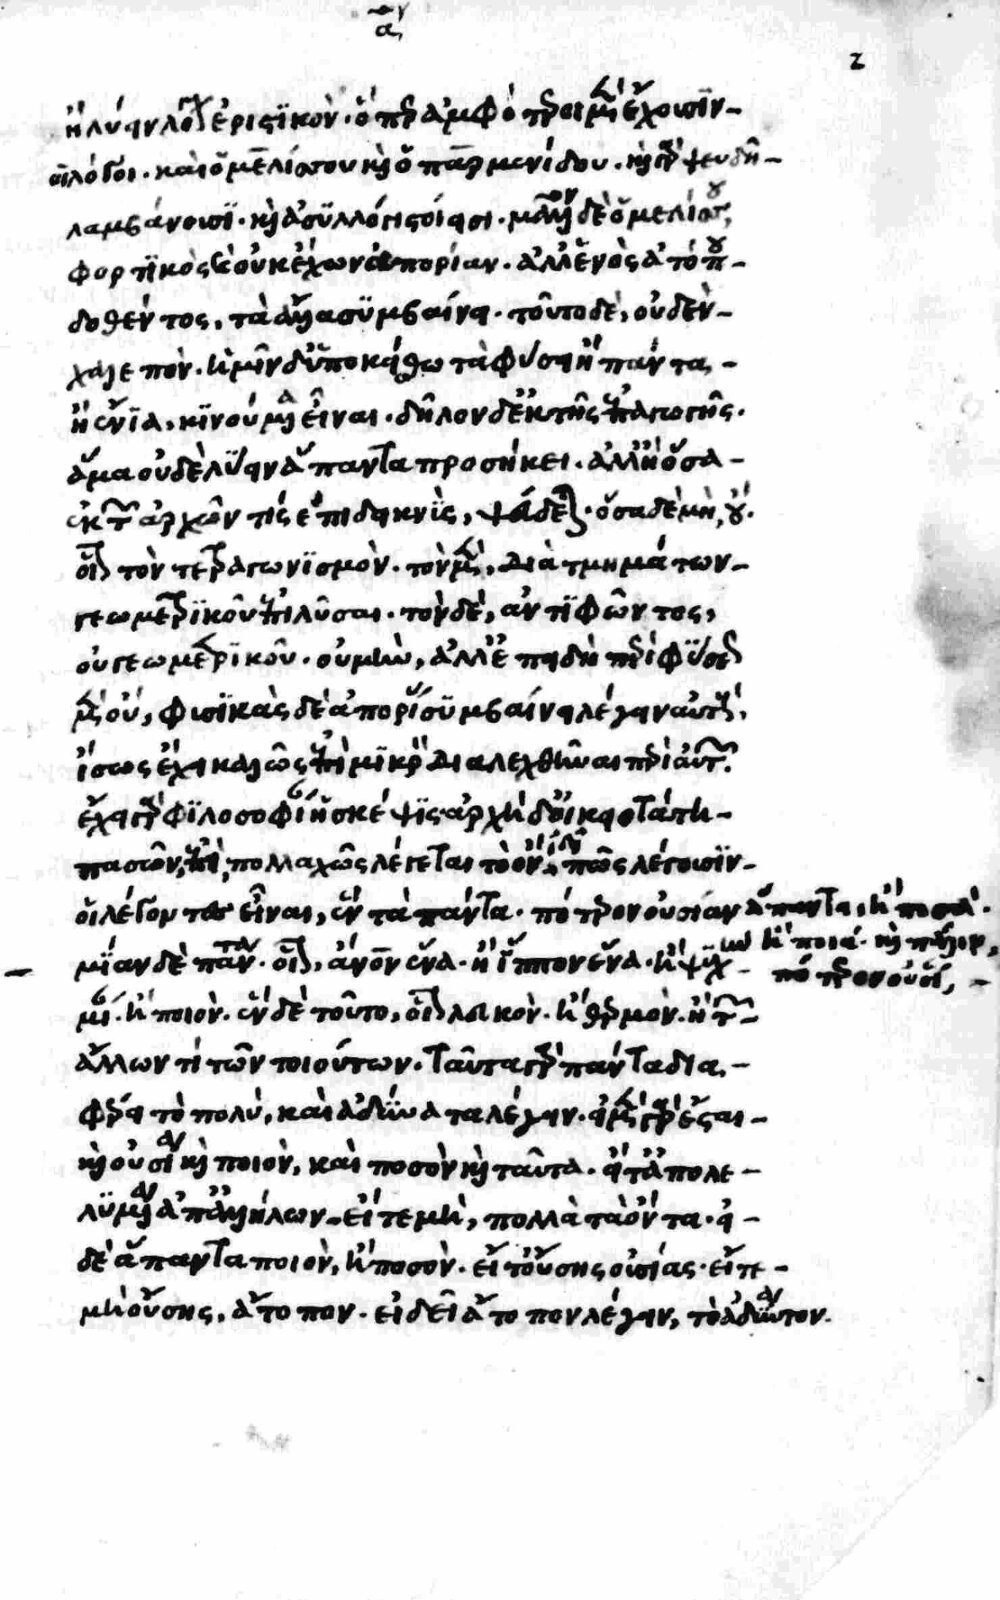 α
2
ἢ λύειν λόγον ἐριστικὸν· ὅπερ ἀμφότεροι μὲν ἔχουσιν
οἱ λόγοι· καὶ ὁ μελίσσου καὶ ὁ παρμενίδου· καὶ γὰρ ψευδῆ
λαμβάνουσι· καὶ ἀσυλλόγιστοί εἰσι· μᾶλλον δὲ ὁ μελίσσου
φορτικὸς καὶ οὐκ ἔχων ἀπορίαν· ἀλλ' ἑνὸς ἀτόπου
δοθέντος, τὰ ἄλλα συμβαίνει· τοῦτο δὲ, οὐδὲν
χαλεπὸν· ἡμῖν δ' ὑποκείσθω τὰ φύσει ἢ πάντα,
ἢ ἔνια, κινούμενα εἶναι· δῆλον δ' ἐκ τῆς ἐπαγωγῆς·
ἅμα οὐδὲ λύειν ἅπαντα προσήκει· ἀλλ' ἢ ὅσα
ἐκ τῶν ἀρχῶν τίς ἐπιδεικνὺς, ψεύδεται· ὅσα δὲ μὴ, οὔ·
οἷον τὸν τετραγωνισμὸν· τὸν μὲν, διὰ τμημάτων
γεωμετρικοῦ ἐπιλῦσαι· τὸν δὲ, ἀντιφῶντος,
οὐ γεωμετρικοῦ· οὐ μὴν, ἀλλ' ἐπειδὴ περὶ φύσεως
μὲν οὔ, φυσικὰς δὲ ἀπορίας συμβαίνει λέγειν αὐτοῖς,
ἴσως ἔχει καλῶς ἐπὶ μικρὸν διαλεχθῆναι περὶ αὐτῶν·
ἔχει γὰρ φιλοσοφίαν ἡ σκέψις ἀρχὴ δ' οἰκειοτάτη
πασῶν, ἐπεὶ πολλαχῶς λέγεται τὸ ὂν, πῶς λέγουσιν
οἱ λέγοντες εἶναι, ἓν τὰ πάντα· πότερον οὐσίαν ἅπαντα, ἢ ποσά·
ἢ ποιά· καὶ πάλιν,
πότερον οὐσίαν
μίαν δὲ πάντα· οἷον, ἄνθρωπον ἕνα· ἢ ἵππον ἕνα· ἢ ψυχὴν
μίαν· ἢ ποιὸν· ἓν δὲ τοῦτο, οἷον λευκὸν· ἢ θερμὸν· ἢ τῶν
ἄλλων τι τῶν τοιούτων· ταῦτα γὰρ πάντα δια
φέρει τὸ πολύ, καὶ ἀδύνατα λέγειν· εἰ μὲν γὰρ ἔσται
καὶ οὐσία καὶ ποιὸν, καὶ ποσὸν καὶ ταῦτα· εἴτ' ἀπολε
λυμένα ἀπ' ἀλλήλων εἴτε μὴ, πολλὰ τὰ ὄντα· εἰ
δὲ ἅπαντα ποιὸν, ἢ ποσὸν· εἴτ' οὔσης οὐσίας· εἴτε
μὴ οὔσης, ἄτοπον· εἰ δεῖ ἄτοπον λέγειν, τὸ ἀδύνατον.